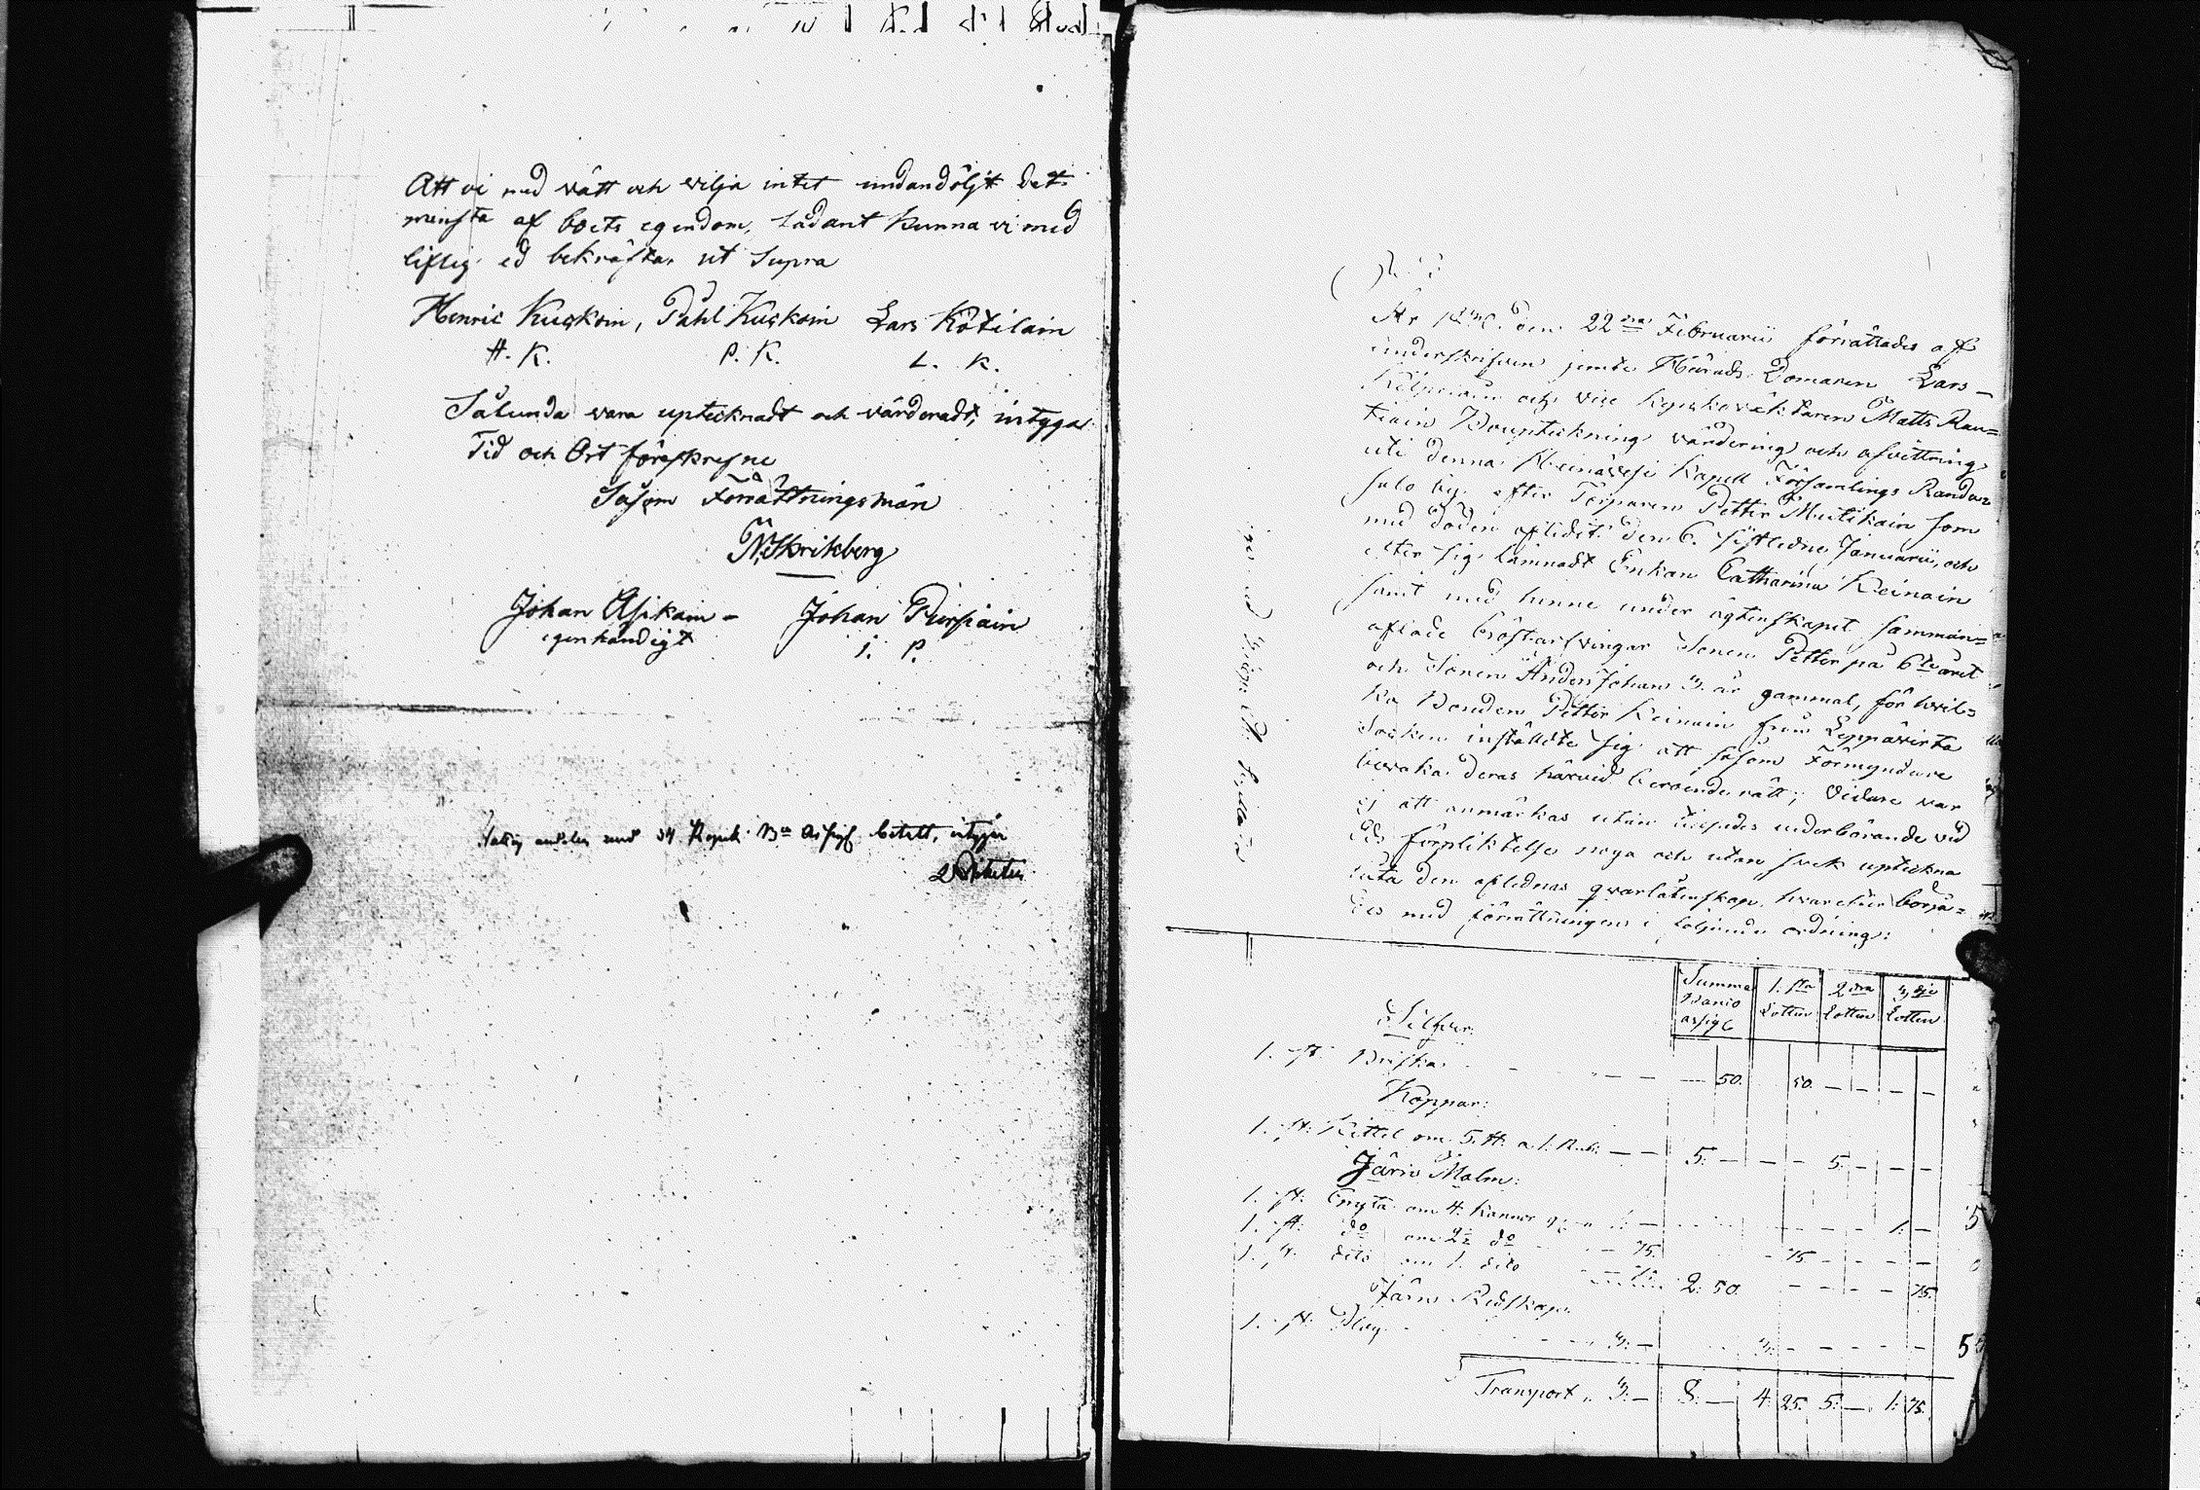 Att vi med vått och vilja intet undandöljt det
minsta af boets egendom, sådant kunna vi med
liflig ed bekräfta, ut Supra
Henric Kuskoin, Påhl Kuskoin Lars Kotilain
H. K. P. K. L. K.
Sålunda vara uptecknadt och värderadt, intyga
Tid och Ort föreskrefne
Såsom Förrättningsmän
Johan Asikain - Johan Piirsiain
egenhändigt I. P.
andelen med 34 Kopek B:co Assigt betalt, intygar
År den 22dra Februarii förrättades af
underskrifven jemte Härads Domaren Lars
och vice Matts Rau=
tiain Bouptekning värdering och afvittring
uti denna Heinävesi Kapell Församlings Randa=
salo by, efter Torparen Petter Mutikain som
med döden aflidit den 6. sistledne Januarii, och
efter sig lämnadt Enkan Catharina Keinain
samt med henne under ägtenskapet samman=
aflade Bröstarfvingar Sonen Petter på 6te året
och Sonen Anders Johan 3. år gammal, för hvil=
ka Bonden Petter Keinain från Leppävirta
Socken inställdte sig att såsom Förmyndare
bevaka deras härvid beroende rätt; Vidare var
ej att anmärkas utan vederbörande vid
Eds förpliktelse noga och utan svek uptekna
låta den aflednas qvarlåtenskap, hvarefter börja=
des med förrättningen i följande ordning:
Summa Banco assig 1.sta Lotten 2dra Lotten 3dje Lotten
Silfver:
1. st: Briska - - - 50. 50. - - - -
Koppar:
1. st: Kittel om 5. ℔ a 1. Rub: - - 5. - - - 5. - - -
Järn Malm:
1. st: Gryta om 4. Kannor 1. -
1. st: do om 2½ do 75. 75. - - - -
1. st: dito om 1. dito 2. 50. - - - - 75.
Järn Redskap
1. st: Plog 3. - 3. - - - - -
Transport 3. - 8. - 4. 25. 5. - 1. 75.